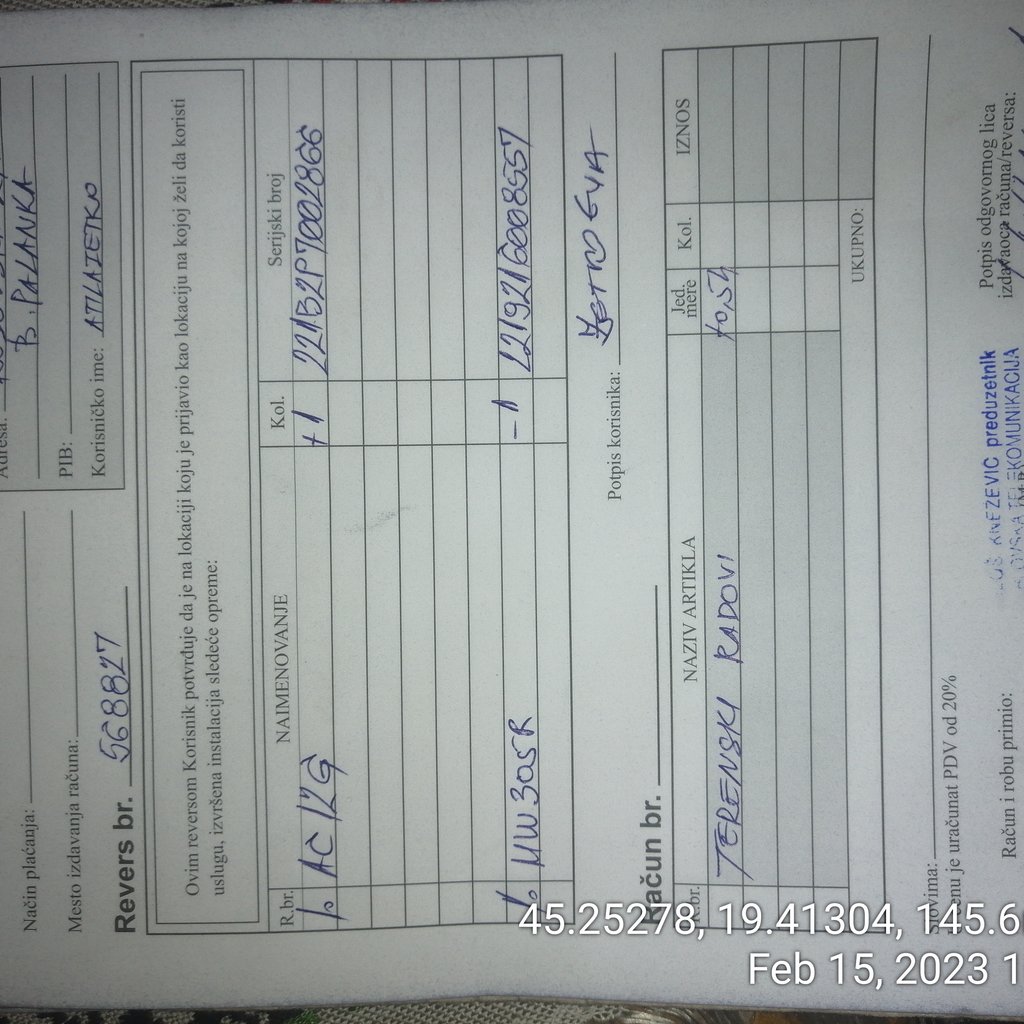 Način plaćanja:
Mesto izdavanja računa:
Adresa:
B. PALANKA
PIB:
Korisničko ime:
Revers br. 568827
Ovim reversom Korisnik potvrđuje da je na lokaciji koju je prijavio kao lokaciju na kojoj želi da koristi
uslugu, izvršena instalacija sledeće opreme:
R.br. NAIMENOVANJE Kol. Serijski broj
1. AC12G +1 221B2P7002866
1. MW305R -1 2219216008557
Potpis korisnika:
Račun br.
R.br. NAZIV ARTIKLA Jed. mere Kol. IZNOS
TERENSKI RADOVI
UKUPNO:
Slovima:
U cenu je uračunat PDV od 20%
Račun i robu primio:
KNEZEVIC preduzetnik
TELEKOMUNIKACIJA
M.P.
Potpis odgovornog lica
izdavaoca računa/reversa:
45.25278, 19.41304, 145.6
Feb 15, 2023 1